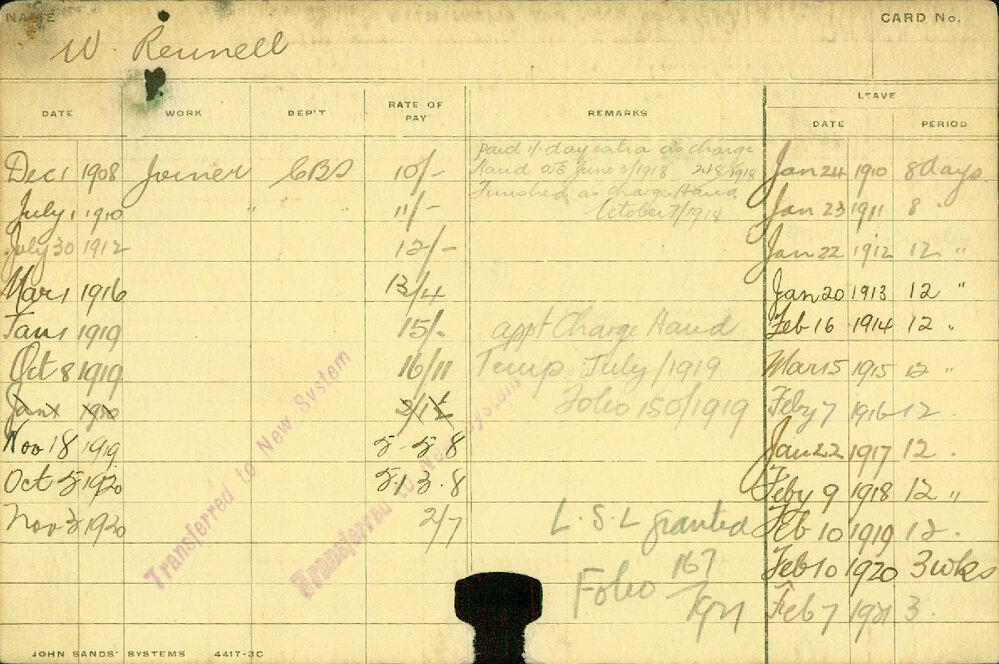 NAME
CARD No.
W. Rennell
DATE WORK DEP'T RATE OF PAY REMARKS LEAVE
DATE PERIOD
Dec 1 1908 Joiner CBS 10/-
July 1 1910 " " " 11/-
July 30 1912 12/-
Mar 1 1916 13/4
Jan 1 1919 15/-
Oct 8 1919 16/11
Jan 1 1920
Nov 18 1919 5.5.8
Oct 5 1920 5.13.8
Nov 3 1920 2/7
paid 1/- day extra as charge
Hand WE June 3/1918 2/8/1918
Finished as charge Hand
October 7/1918
appt Charge Hand
Temp July/1919
Folio 150/1919
L.S.L granted
Folio 167/1921
Jan 24 1910 8 days
Jan 23 1911 8 "
Jan 22 1912 12 "
Jan 20 1913 12 "
Feb 16 1914 12 "
Mar 15 1915 12 "
Feby 7 1916 12 .
Jan 22 1917 12 .
Feby 9 1918 12 "
Feb 10 1919 12 .
Feb 10 1920 3 wks
Feb 7 1921 3 .
Transferred to New System
Transferred to New System
JOHN SANDS' SYSTEMS 4417-3C